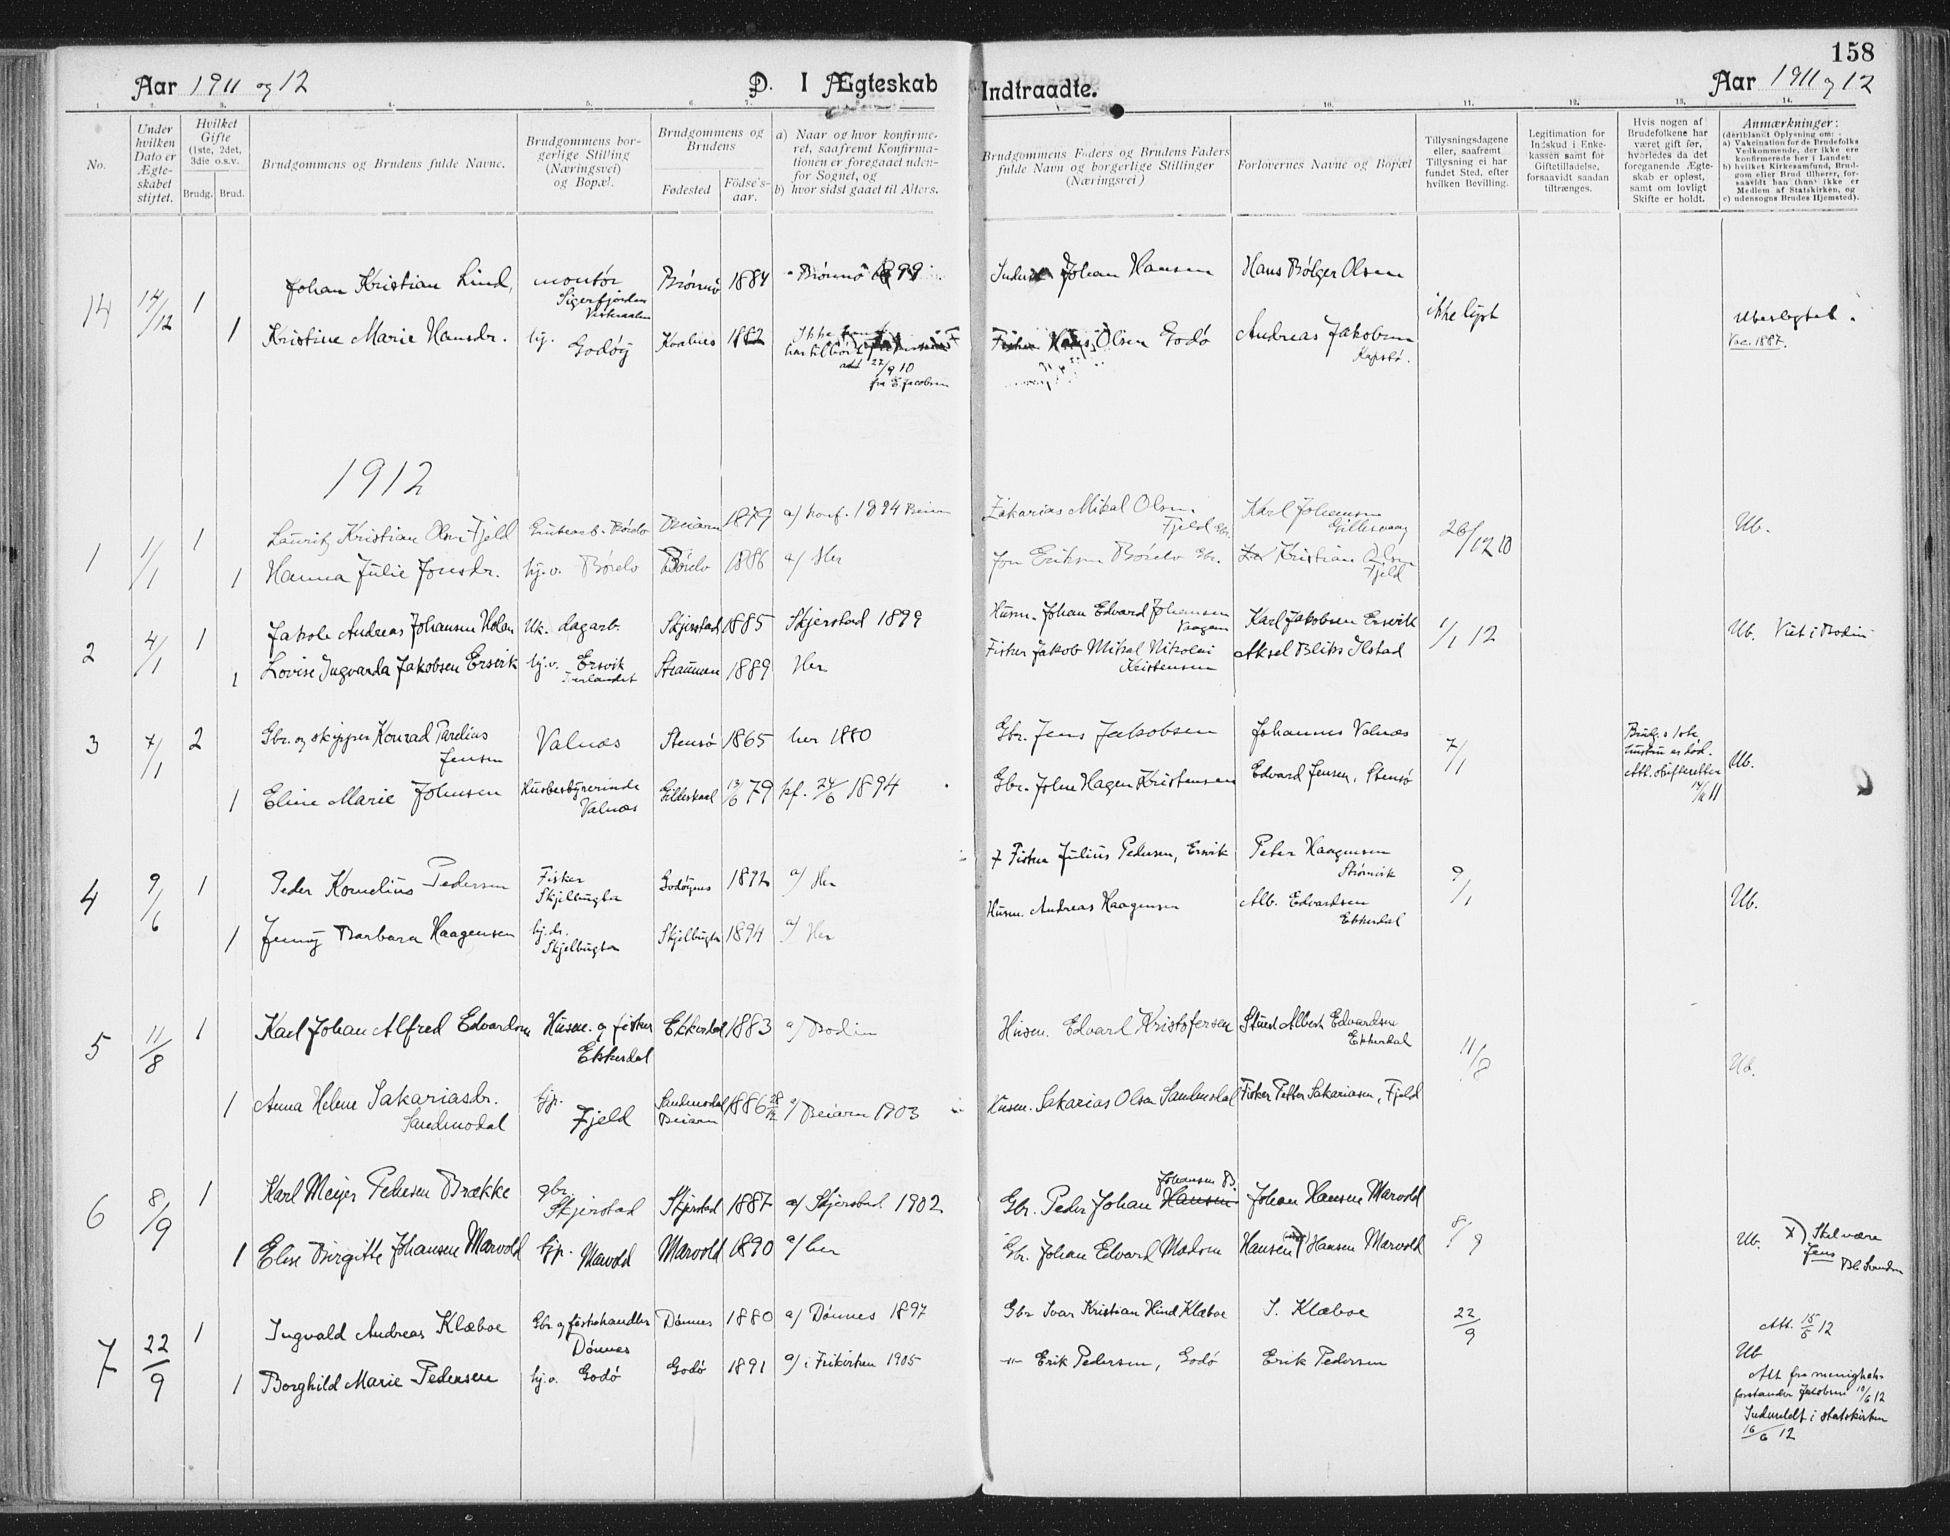 158
Aar 1911 og 12
D. I Ægteskab
Indtraadte.
Aar 1911 og 12
1. 2. 3. 4. 5. 6. 7. 10. 11. 12. 13. 14.
No.
Under hvilken Dato er Ægteskabet stiftet.
Hvilket Gifte (1ste, 2det, 3die o.s.v.
Brudg. Brud.
Brudgommens og Brudens fulde Navne.
Brudgommens borgerlige Stilling (Næringsvei) og Bopæl.
Brudgommens og Brudens
Fødested
Födse's-aar.
a) Naar og hvor konfirmeret, saafremt Konfirmationen er foregaaet udenfor Sognet, og
b) hvor sidst gaaet til Alters.
Brudgommens Faders og Brudens Faders fulde Navn og borgerlige Stillinger (Næringsvei)
Forlovernes Navne og Bopæl
Tillysningsdagene eller, saafremt Tillysning ei har fundet Sted, efter hvilken Bevilling.
Legitimation for Indskud i Enkekassen samt for Giftetilladelse, forsaavidt saadan tiltrænges.
Hvis nogen af Brudefolkene har været gift før, hvorledes da det foregaaende Ægteskab er opløst, samt om lovligt Skifte er holdt.
Anmærkninger:
(deriblandt Oplysning om:
a) Vakcination for de Brudefolks Vedkommende, der ikke ere konfirmerede her i Landet;
b) hvilket Kirkesamfund, Brudgom eller Brud tilhører, forsaavidt han (hun) ikke er Medlem af Statskirken, og
c) udensogns Brudes Hjemsted).
14 14/12 1 Johan Kristian Lind, montør Sigerfjorden Vesteraalen Brønnø 1884 Brønnø 1899 Johan Hansen Hans Bølger Olsen
1 Kristine Marie Hansdr. hj. Godøy 1882 22/9 10 fra Jacobsen Olsen Godø Andreas Jakobsen ikke lyst Ubeslægtet. Vac. 1887.
1912
1 1/1 1 Lauritz Kristian Olsen Fjeld Beiarn 1879 a) konf. 1894 Beiarn Zakarias Mikal Olsen Fjeld Gbr. Karl Johansen Gillesvaag 26/12 10 Ub.
1 Hanna Julie Jonsdr. hj.v. Børelv Børelv 1886 a) Her Jon Eriksen Børelv Gbr. Kristian Olsen Fjeld
2 4/1 1 Jakob Andreas Johansen Holm Uk. dagarb. Skjerstad 1885 Skjerstad 1899 Husm. Johan Edvard Johansen Vaagan Karl Jakobsen Ersvik 1/1 12 Ub. Viet i Bodin
1 Lovise Ingvarda Jakobsen Ersvik hj.v. Ersvik Straumen 1889 Her Fisker Jakob Mikal Nikolai Kristensen Aksel Bliks Ilstad
3 7/1 2 Gbr. og skipper Konrad Parelius Jensen Valnæs Stensø 1865 her 1880 Gbr. Jens Jakobsen Johannes Valnæs 7/1 Brudg.s 1ste hustru er død. Att. skifteretten Ub.
1 Eline Marie Johnsen Husbestyrerinde Valnæs Gildeskaal 79 kf. 24/6 1894 Gbr. John Hagen Kristensen Edvard Jensen, Stensø
4 9/6 1 Peder Kornelius Pedersen Fisker Skjelbugten Godøynes 1892 a) Her Fisker Julius Pedersen, Ersvik Peter Haagensen Strømvik 9/1 Ub.
1 Jenny Barbara Haagensen hj.dr. Skjelbugten Skjelbugten 1894 a) Her Husm. Andreas Haagensen Alb. Edvardsen Ekkerdal
5 11/8 1 Karl Johan Alfred Edvardsen Husm. og fisker Ekkerdal Ekkerdal 1883 a) Bodin Husm. Edvard Kristofersen Albert Edvardsen Ekkerdal 11/8 Ub.
1 Anna Helene Sakariasdr. Sandmodal hjp. Fjeld Sandmodal Beiarn 1886 a) Beiarn 1903 Husm. Sakarias Olsen Sandmodal Fisker Petter Sakariasen, Fjeld
6 8/9 1 Karl Meyer Pedersen Brække gbr. Skjerstad Skjerstad 1887 a) Skjerstad 1902 Gbr. Peder Johan Hansen Johansen B. Johan Hansen Marvold
1 Elise Birgitte Johansen Marvold hjp. Marvold Marvold 1890 a) her Gbr. Johan Edvard Madsen Hansen x) Hansen Marvold 8/9 Ub. x) Skal være Jens
7 22/9 1 Ingvald Andreas Klæboe Gbr. og fiskehandler Dønnes Dønnes 1880 a) Dønnes 1897 Gbr Ivar Kristian Hind Klæboe I. Klæboe 22/9 Att. 15/5 12
1 Borghild Marie Pedersen hj.v. Godø Godø 1891 a) i Frikirken 1905 -"- Erik Pedersen, Godø Erik Pedersen Ub Att fra menighetsforstander Jacobsen 10/6 12 Indmeldt i statskirken 16/6 12